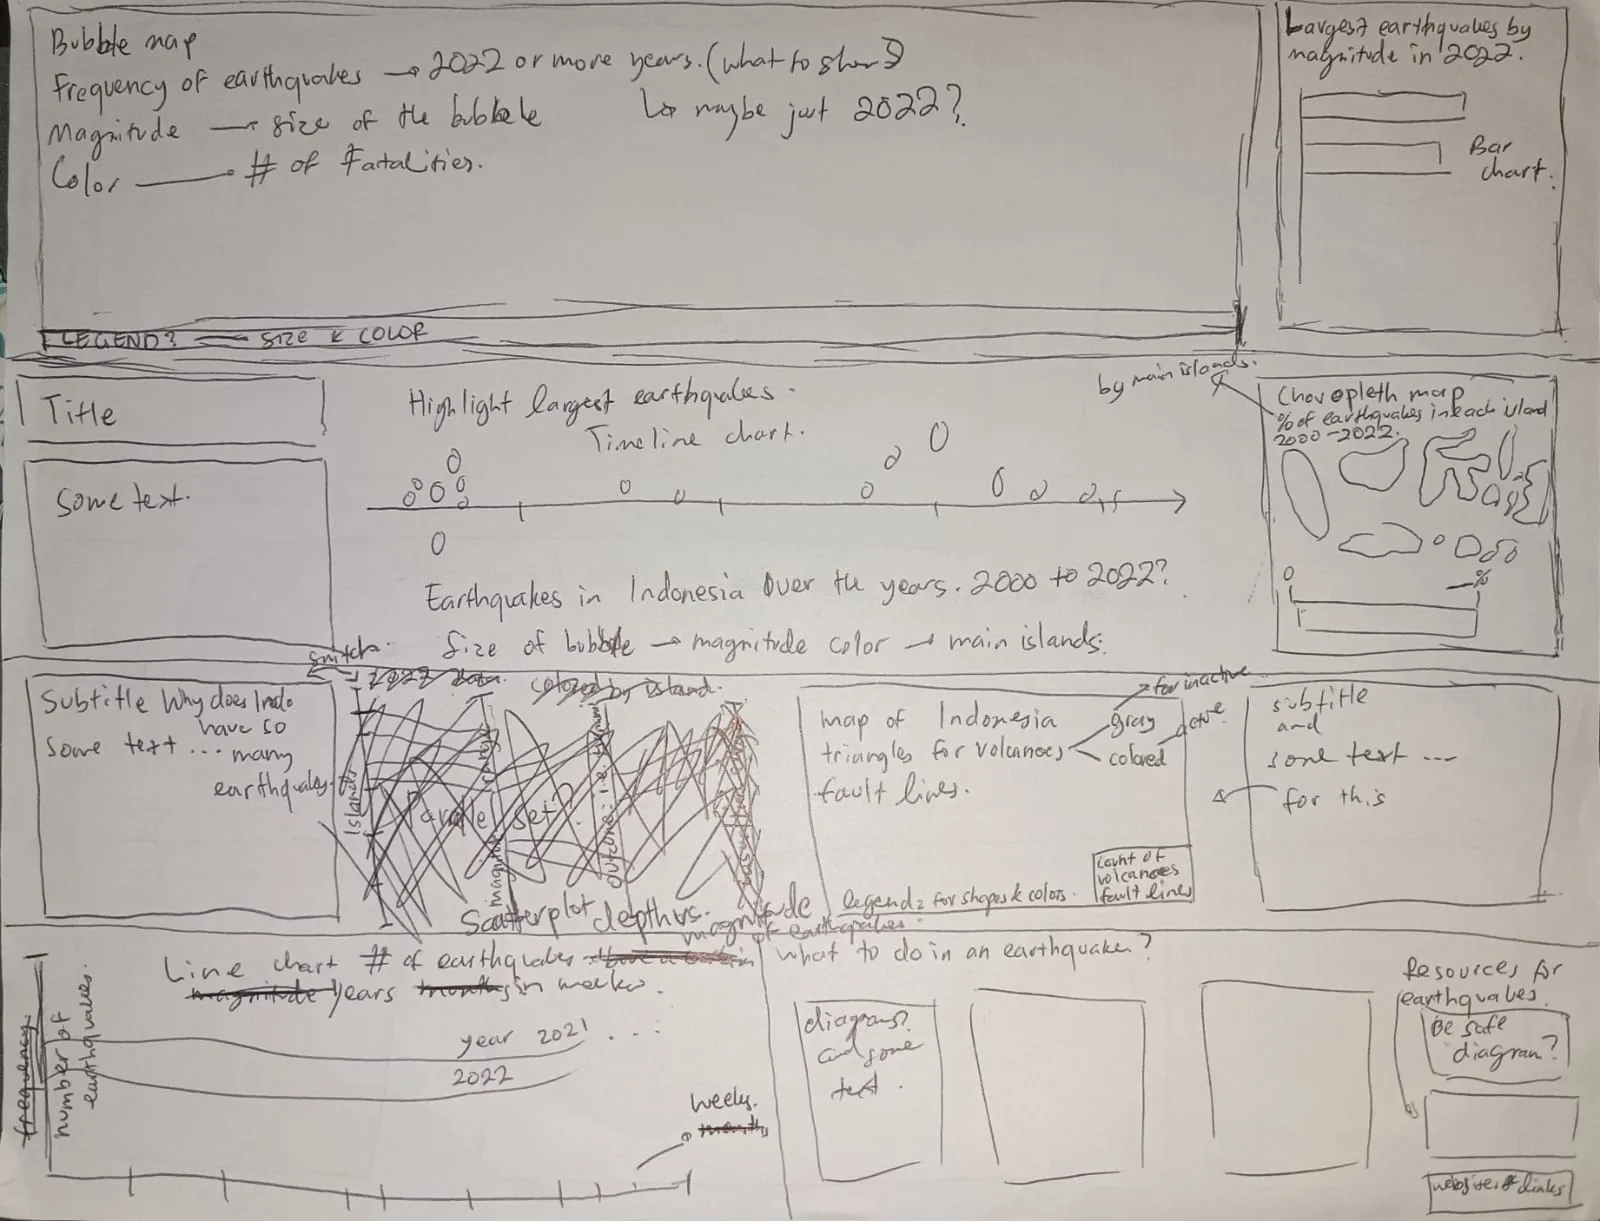 Bubble map
Frequency of earthquakes → 2022 or more years. (what to show?)
↳ maybe just 2022?
Magnitude → size of the bubble
Color → # of Fatalities.
LEGEND? — SIZE & COLOR
Largest earthquakes by
magnitude in 2022.
Bar
chart.
Title
Some text.
Highlight largest earthquakes.
Timeline chart.
Earthquakes in Indonesia Over the years. 2000 to 2022?
Size of bubble → magnitude color → main islands.
by main islands.
Choropleth map
% of earthquakes in each island
2000-2022.
0
%
Subtitle Why does Indo
have so
many
earthquakes.
some text ...
switch.
2022 data.
colored by island.
Islands
Parallel set?
Scatterplot depth vs. magnitude
of earthquakes.
map of Indonesia
triangles for volcanoes
fault lines.
gray
for inactive
colored
active
legend: for shapes & colors.
count of
volcanoes
fault lines
subtitle
and
some text ...
for this
Line chart # of earthquakes
magnitude years months in weeks.
frequency
number of
earthquakes.
year 2021 ...
2022
weeks.
months
what to do in an earthquake?
diagrams?
and some
text.
Resources for
earthquakes.
Be safe
diagram?
websites & links